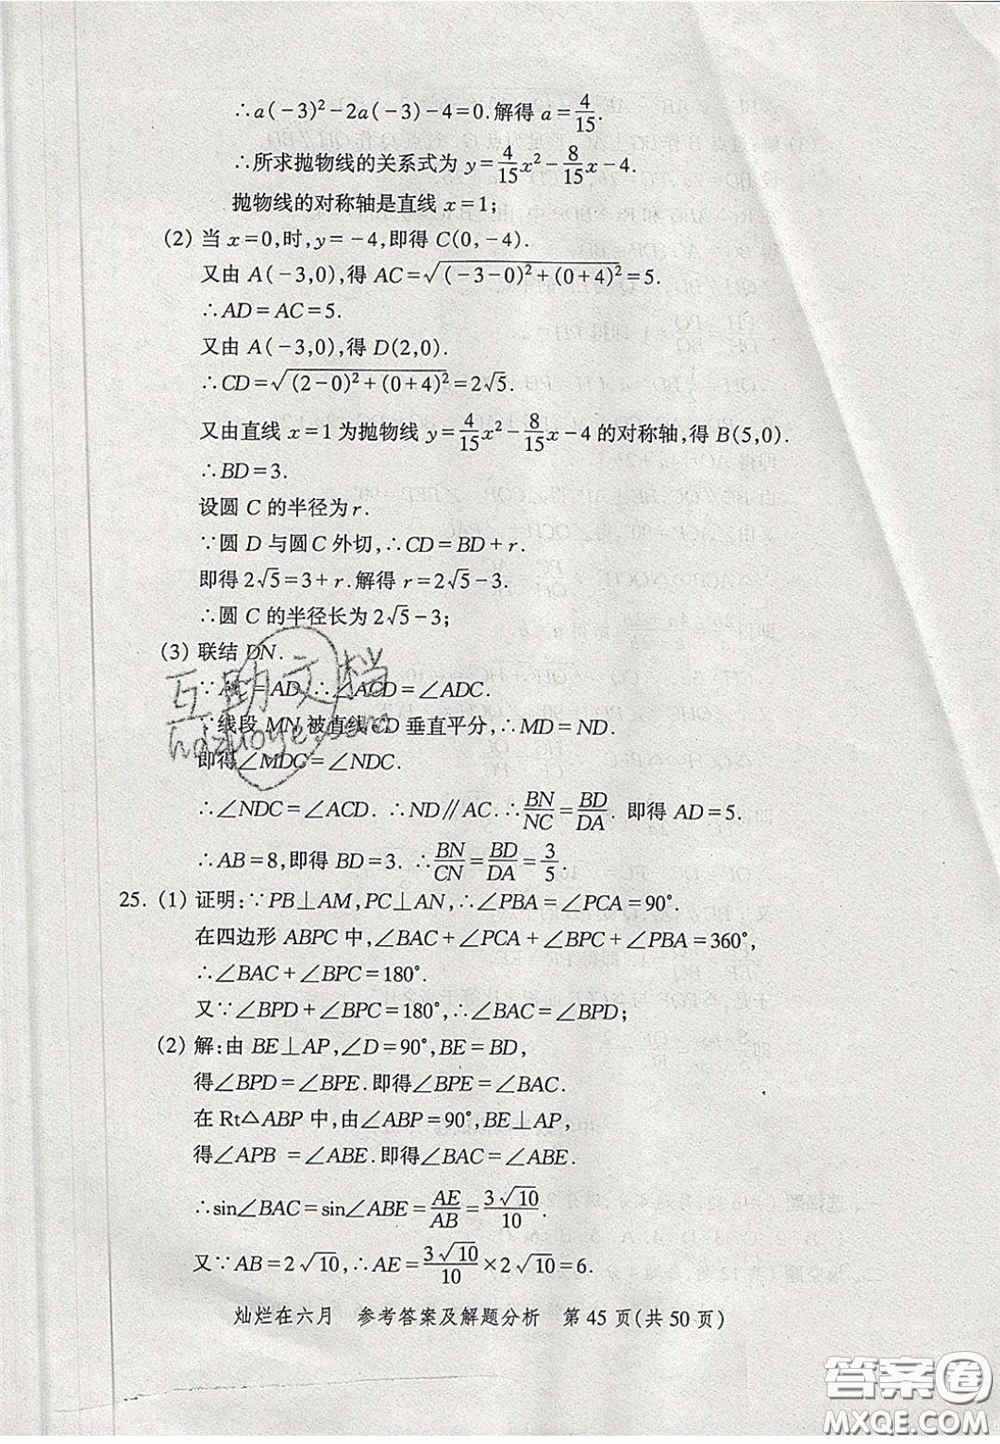 ∴a(-3)²-2a(-3)-4=0.解得a=4/15.
∴所求抛物线的关系式为 y=4/15x²-8/15x-4.
抛物线的对称轴是直线 x=1;
(2) 当 x=0,时,y=-4,即得 C(0,-4).
又由 A(-3,0),得 AC=√((-3-0)²+(0+4)²)=5.
∴AD=AC=5.
又由 A(-3,0),得 D(2,0).
∴CD=√((2-0)²+(0+4)²)=2√5.
又由直线 x=1 为抛物线 y=4/15x²-8/15x-4 的对称轴,得 B(5,0).
∴BD=3.
设圆 C 的半径为 r.
∵圆 D 与圆 C 外切,∴CD=BD+r.
即得 2√5=3+r.解得 r=2√5-3.
∴圆 C 的半径长为 2√5-3;
(3) 联结 DN.
∵AC=AD,∴∠ACD=∠ADC.
∵线段 MN 被直线 CD 垂直平分,∴MD=ND.
即得∠MDC=∠NDC.
∴∠NDC=∠ACD. ∴ND∥AC. ∴BN/NC=BD/DA. 即得 AD=5.
∴AB=8,即得 BD=3. ∴BN/CN=BD/DA=3/5.
25. (1) 证明:∵PB⊥AM,PC⊥AN,∴∠PBA=∠PCA=90°.
在四边形 ABPC 中,∠BAC+∠PCA+∠BPC+∠PBA=360°,
∴∠BAC+∠BPC=180°.
又∵∠BPD+∠BPC=180°,∴∠BAC=∠BPD;
(2) 解:由 BE⊥AP,∠D=90°,BE=BD,
得∠BPD=∠BPE.即得∠BPE=∠BAC.
在 Rt△ABP 中,由∠ABP=90°,BE⊥AP,
得∠APB=∠ABE.即得∠BAC=∠ABE.
∴sin∠BAC=sin∠ABE=AE/AB=3√10/10.
又∵AB=2√10,∴AE=3√10/10×2√10=6.
灿烂在六月 参考答案及解题分析 第 45 页(共 50 页)
互助文档
hdzuoye.com
答案圈
MXQE.COM